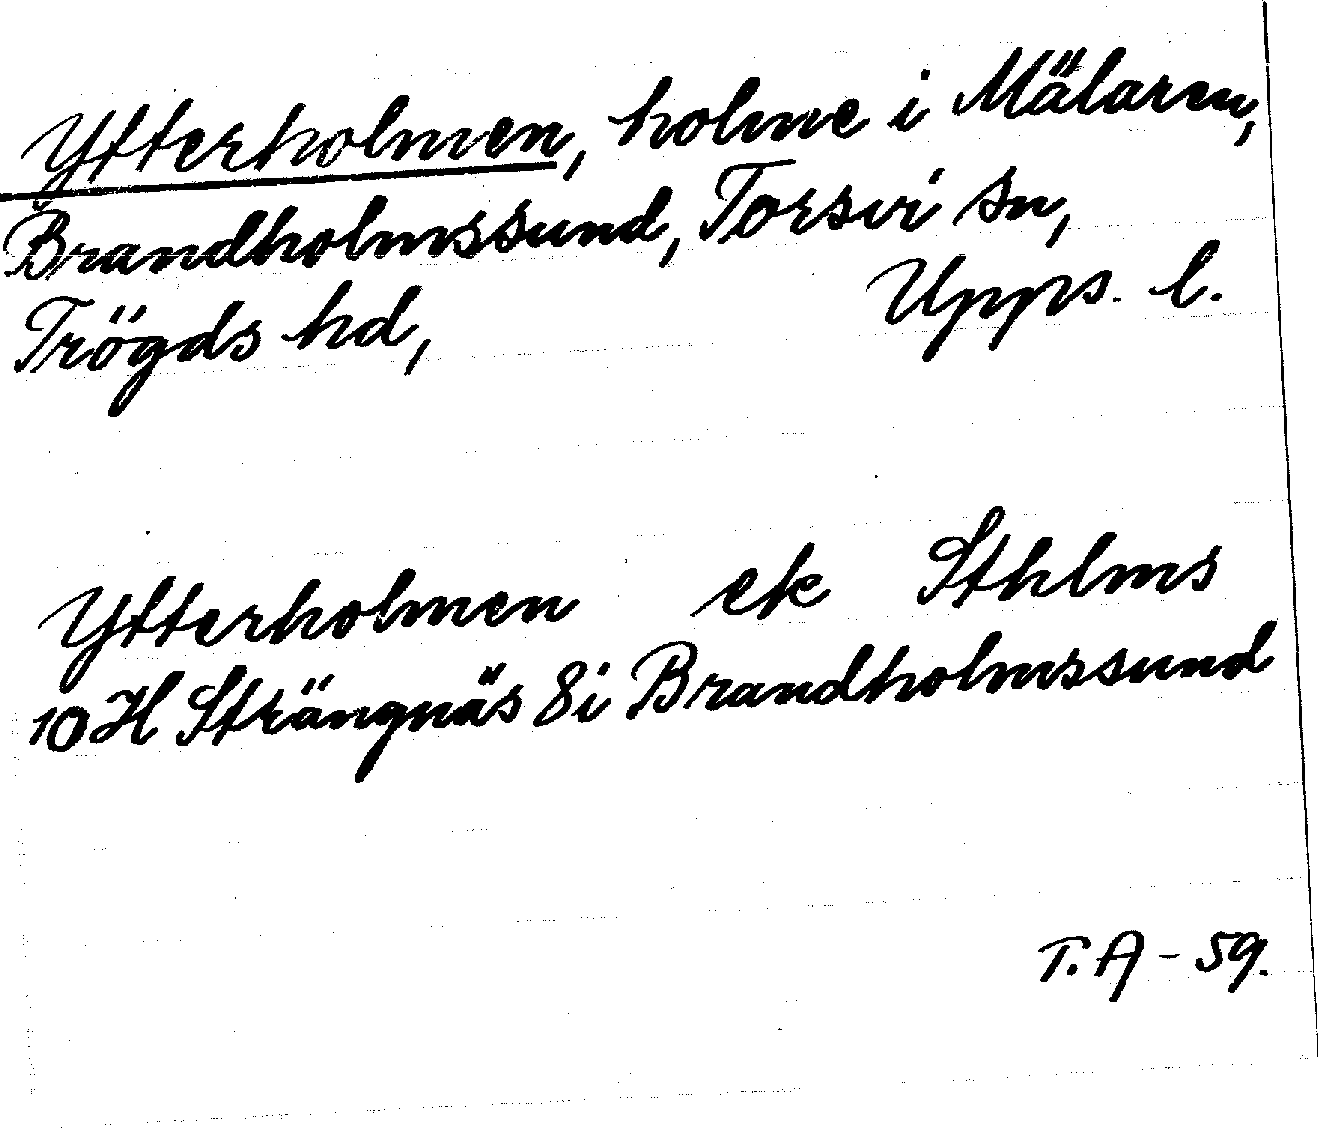 Ytterholmen, holme i Mälaren,
Brandholmssund, Torsvi sn,
Trögds hd, Upps. l.
Ytterholmen ek Sthlms
10 H Strängnäs 8 i Brandholmssund
T. A - 59.